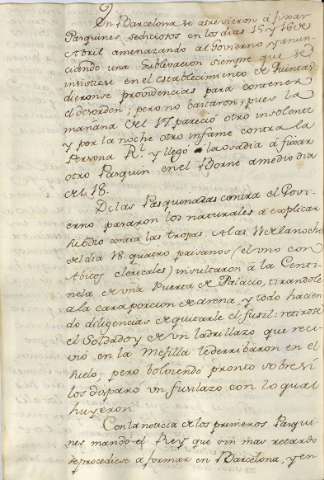 En Barcelona se atrevieron á fixar
Pasquines sediciosos en los dias 15 y 16 de
Abril amenazando al Govierno y anun-
ciando una sublevacion siempre que se
insistiese en el establecimiento de Quintas
dieronse providencias para contener
el desorden; pero no bastaron, pues la
mañana del 17 pareció otro insolente
y por la noche otro infame contra la
Persona Rl. y llegó la osadia á fixar
otro Pasquin en el Borne a medio dia
del 18.
De las Pasquinadas contra el Govi-
erno pasaron los naturales a explicar
su odio contra las tropas. A las de la noche
del dia 18. quatro paisanos (el uno con
Abitos clericales) insultaron á la Centi-
nela de una Puerta de Palacio, tirandole
a la cara porcion de arena, y todo hacien-
do diligencias de quitarle el fusil: retirose
el Soldado y de un ladrillazo que reci-
vió en la Mexilla le derribaron en el
suelo, pero bolviendo pronto sobre sí
les disparó un fusilazo con lo qual
huyeron.
Con la noticia de los primeros Pasqui-
nes mandó el Rey que sin mas retardo
se procediese a formar en Barcelona, y en